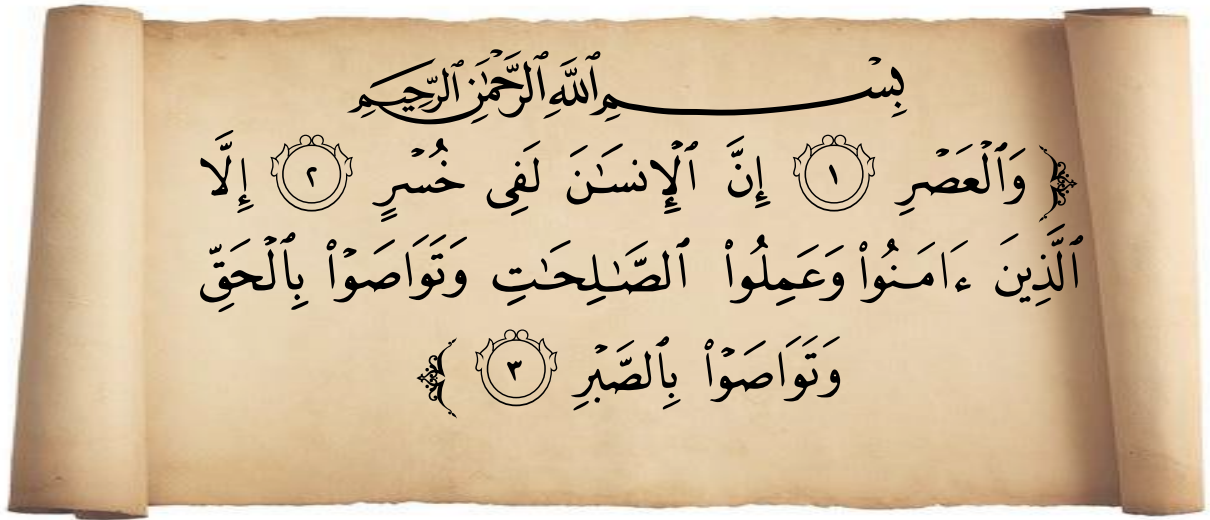 بِسْمِ ٱللَّهِ ٱلرَّحْمَٰنِ ٱلرَّحِيمِ
﴿ وَٱلْعَصْرِ ١ إِنَّ ٱلْإِنسَٰنَ لَفِى خُسْرٍ ٢ إِلَّا
ٱلَّذِينَ ءَامَنُوا۟ وَعَمِلُوا۟ ٱلصَّٰلِحَٰتِ وَتَوَاصَوْا۟ بِٱلْحَقِّ
وَتَوَاصَوْا۟ بِٱلصَّبْرِ ٣ ﴾